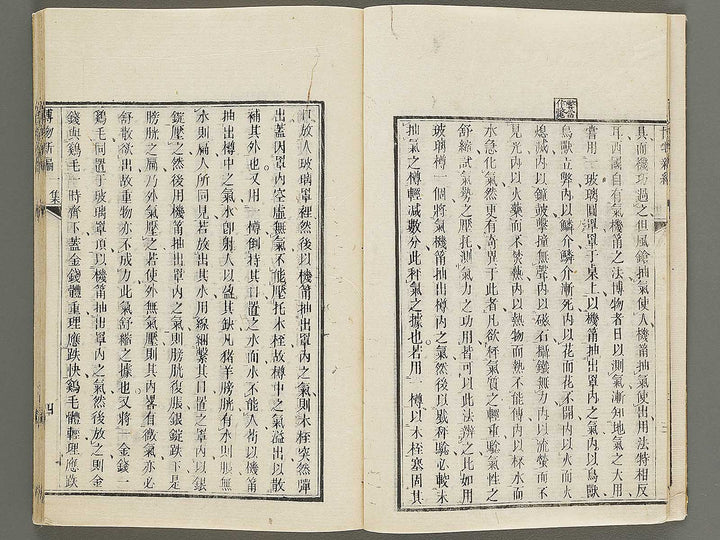 博物新編
其而機巧過之但風鎗抽氣使入機筩抽氣使出用法特相反
耳西國自有氣機筩之法博物者日以測氣漸知地氣之大用
嘗用一玻璃圓罩罩于桌上以機筩抽出罩內之氣內以鳥獸
鳥獸立斃內以鱗介鱗介漸死內以花而花不開內以火而火
熄滅內以鐘鼓擊撞無聲內以磁石攝鐵無力內以流螢而不
見光內以火藥而不焚熱內以熱物而熱不能傳內以杯水而
水急化氣然更有奇異于此者凡欲秤氣質之輕重驗氣性之
舒縮試氣勢之壓托測氣力之功用者可以此法辨之此如用
玻璃樽一個將氣機筩抽出樽內之氣然後以戥秤驗必較未
抽氣之樽輕減數分此秤氣之據也若用一樽以木栓塞固其
口放入玻璃罩裡然後以機筩抽出罩內之氣則木栓突然彈
出蓋因罩內空虛無氣不能壓托木栓故樽中之氣溢出以散
補其外也又用一樽倒持其口置之水面水不能入若以機筩
抽出樽中之氣水卽射入以盈其缺凡豬羊膀胱有水則脹無
水則扁人所同見若放出其水用線綑繫其口置之罩內以銀
錠壓之然後用機筩抽出罩內之氣則膀胱復脹銀錠跌下是
膀胱之扁乃外氣壓之若使外無氣壓則其內畧有微氣亦必
舒散欲出故重物亦不成力此氣舒縮之據也又將一金錢一
鷄毛同置于玻璃罩頂以機筩抽出罩內之氣然後放之則金
錢與鷄毛一時齊下蓋金錢體重理應跌快鷄毛體輕理應跌
博物新編
集
四